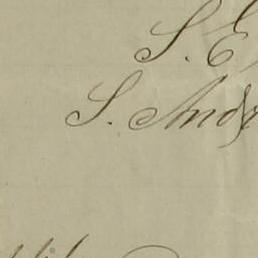 S. E
S. Andr